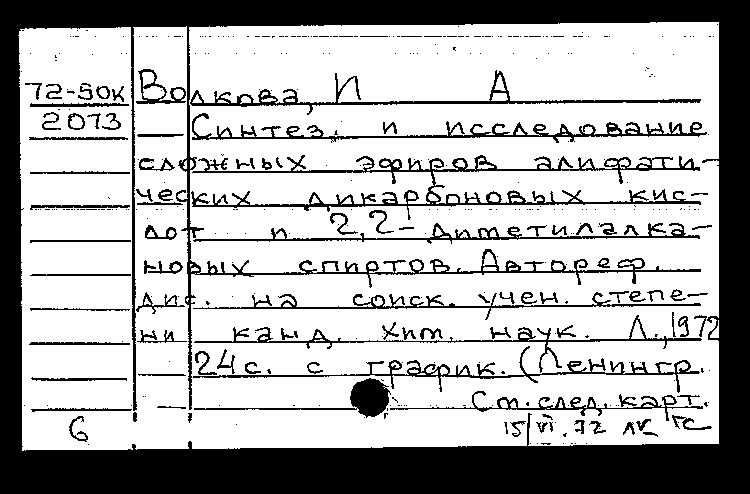 72-50к Волкова, И А
2073 Синтез и исследование
сложных эфиров алифати-
ческих дикарбоновых кис-
лот и 2,2-диметилалка-
новых спиртов. Автореф.
дис. на соиск. учен. степе-
ни канд. хим. наук. Л., 1972
24 с. с график. (Ленингр.
См. след. карт.
6 15/VI.72 ЛК ГС